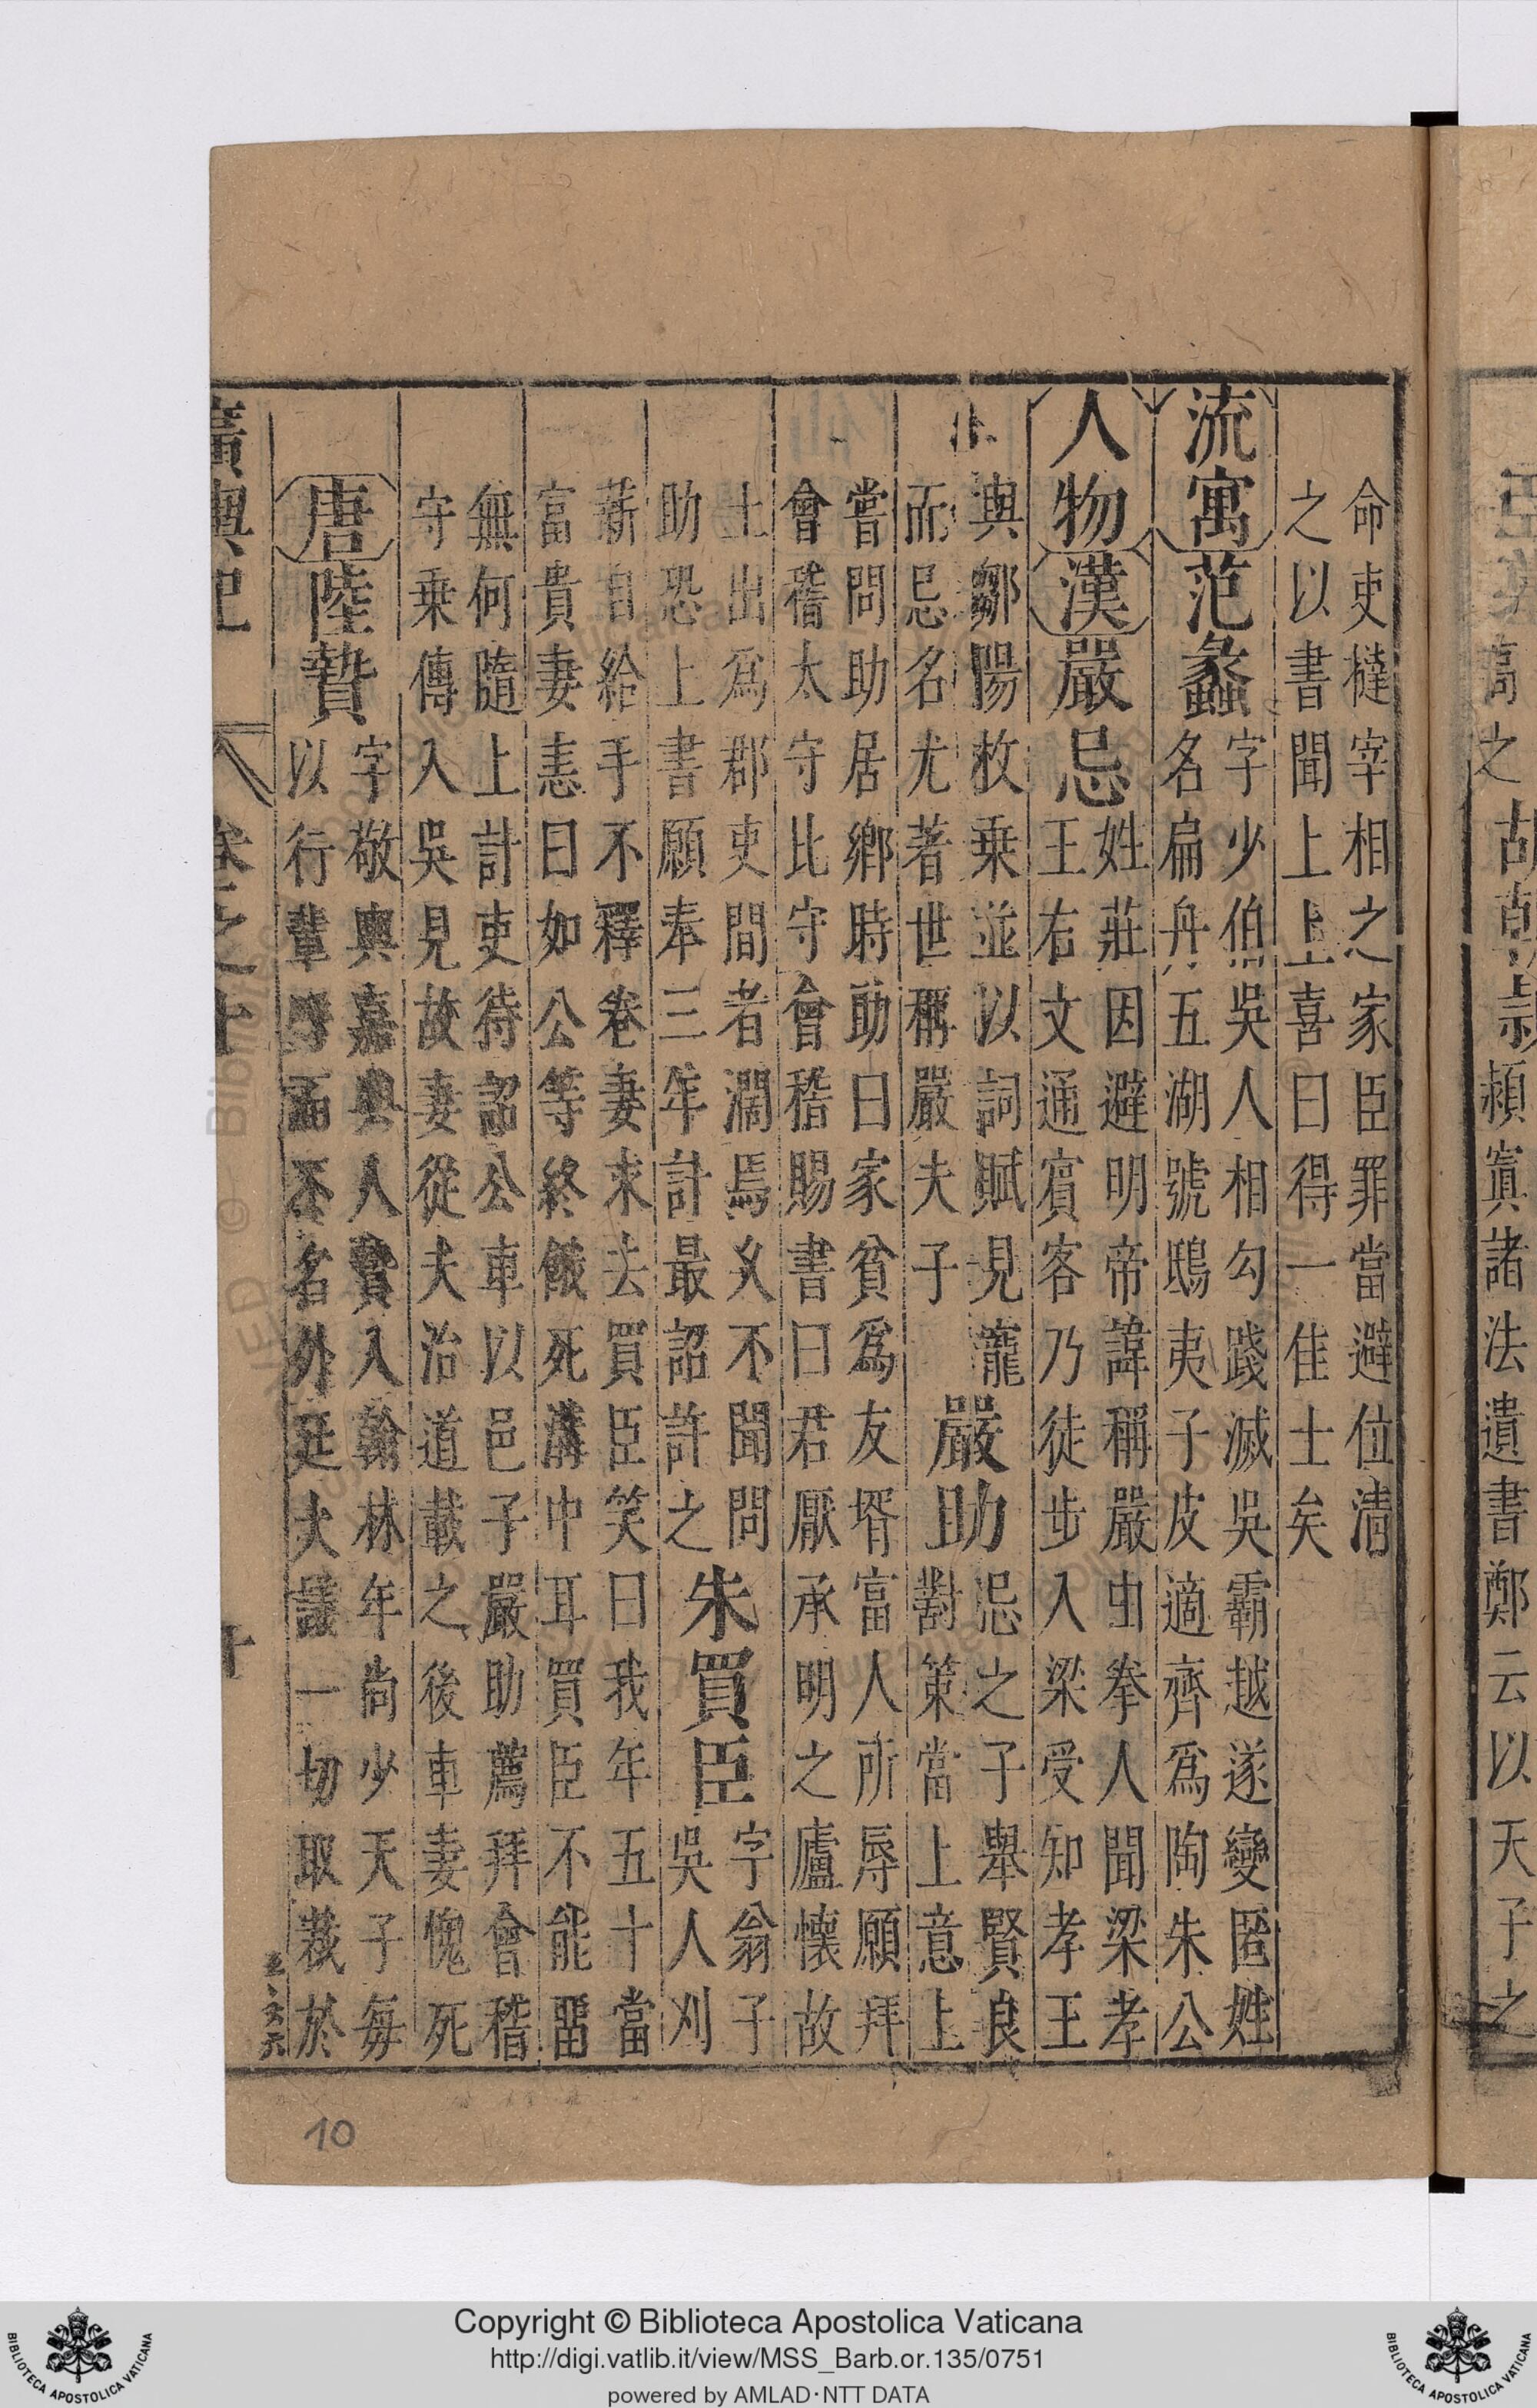 命吏撻宰相之家臣罪當避位清
之以書聞上上喜曰得一佳士矣
流寓 范蠡 字少伯吳人相勾踐滅吳霸越遂變匿姓
名扁舟五湖號鴟夷子皮適齊爲陶朱公
人物 漢 嚴忌 姓莊因避明帝諱稱嚴虫拳人聞梁孝
王右文通賓客乃徒步入梁受知孝王
與鄒陽枚乗並以詞賦見寵
而忌名尤著世稱嚴夫子
嚴助 忌之子舉賢良
對策當上意上
嘗問助居鄉時助曰家貧爲友壻富人所辱願拜
會稽太守比守會稽賜書曰君厭承明之廬懷故
土出爲郡吏間者濶焉久不聞問
助恐上書願奉三年計最詔許之
朱買臣 字翁子
吳人刈
薪自給手不釋卷妻求去買臣笑曰我年五十當
富貴妻恚曰如公等終餓死溝中耳買臣不能畱
無何隨上計吏待詔公車以邑子嚴助薦拜會稽
守乗傳入吳見故妻從夫治道載之後車妻愧死
唐 陸贄 字敬輿嘉興人贄入翰林年尚少天子毎
以行輩呼而不名外廷大議一切取裁於
廣輿記 卷之十 十
高之
胡
潁寘諸法遺書鄭云以天子之
10
Copyright © Biblioteca Apostolica Vaticana
http://digi.vatlib.it/view/MSS_Barb.or.135/0751
powered by AMLAD·NTT DATA
BIBLIOTECA APOSTOLICA VATICANA
BIBLIOTECA APOSTOLICA VATICANA